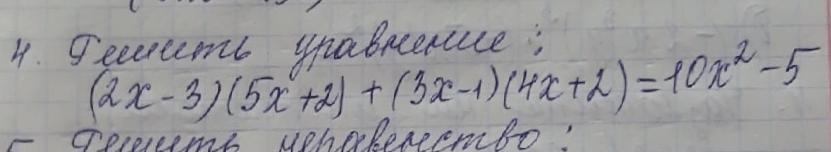 4. Решить уравнение:
(2x-3)(5x+2)+(3x-1)(4x+2)=10x²-5
5 Решить неравенство: